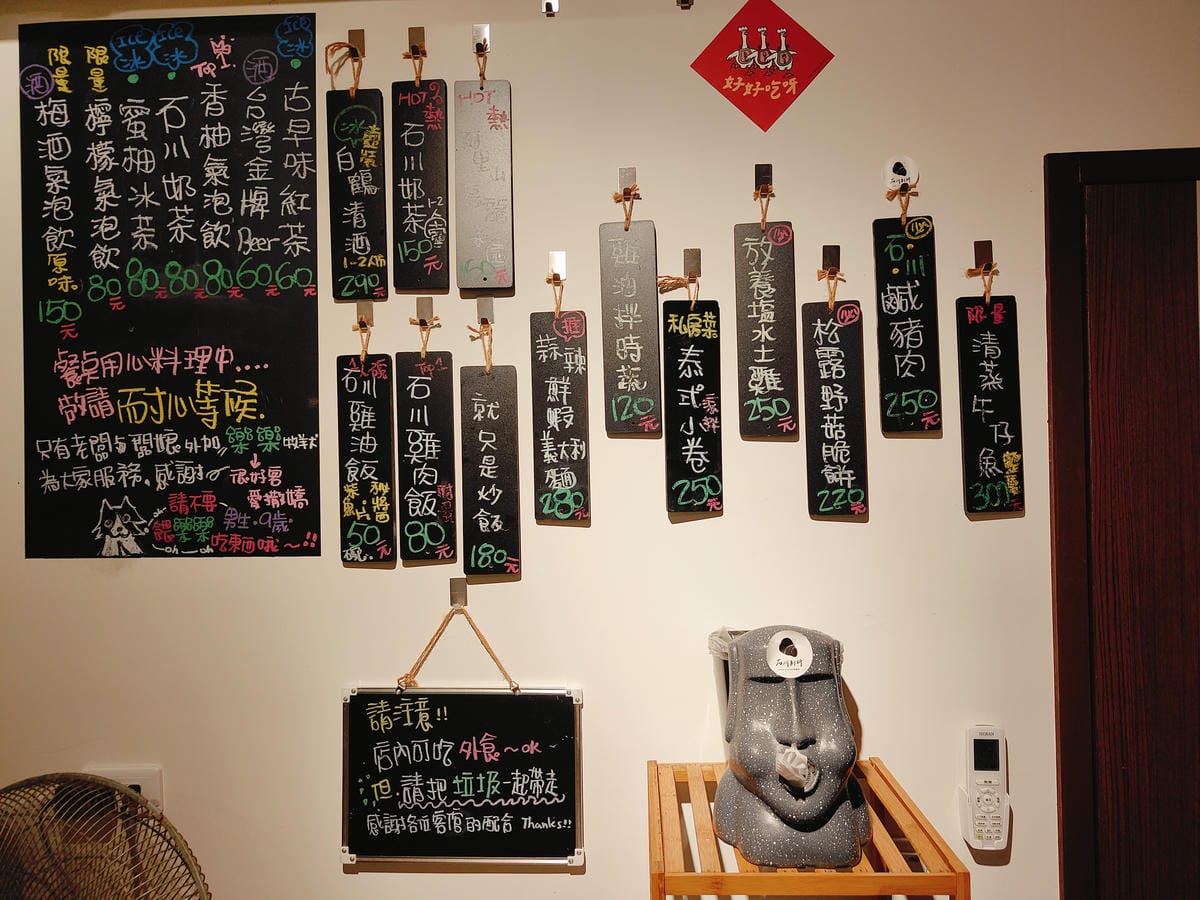 ICE 冰
古早味紅茶 60元
酒 台灣金牌Beer 60元
Top1. 香柚氣泡飲 80元
ICE 冰
石川奶茶 80元
ICE 冰
蜜柚冰茶 80元
限量 檸檬氣泡飲 80元
酒 限量 梅酒氣泡飲 原味 150元
餐点用心料理中....
敬請耐心等候.
只有老闆与闆娘外加樂樂
為大家服務.感謝
很好客
愛撒嬌
請不要
餵樂樂
男生.9歲
吃東西哦~!!
oh~oh
冰 壺裝 白鶴清酒 1-2人份 290元
HOT 熱 石川奶茶 1-2人壺 150元
HOT 熱
160元
石川雞油飯 50元 碗
Top1 石川雞肉飯 80元
就只是炒飯 180元
推 蒜辣鮮蝦義大利麵 280元
雞油拌時蔬 120元
私房菜 泰式小卷 250元
放養塩水土雞 250元
松露野菇脆餅 220元
石川鹹豬肉 250元
限量 清蒸午仔魚 300元
好好吃呀
石川料理
請注意!!
店內可吃外食~OK
但.請把垃圾一起帶走
感謝各位客官的配合 Thanks!!
石川料理
HERAN